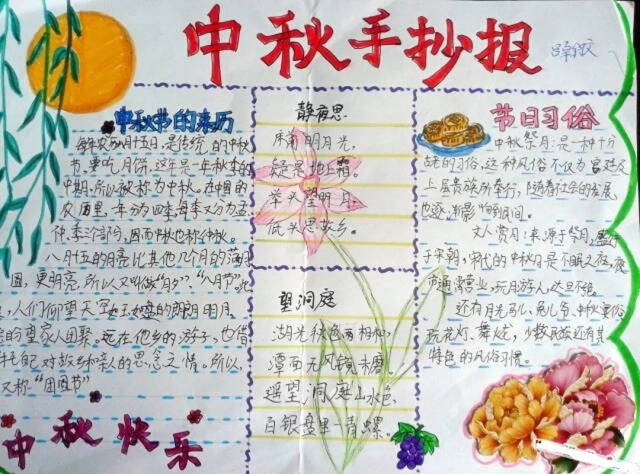 中秋手抄报
中秋节的来历
每年农历八月十五日,是传统的中秋
节,要吃月饼,这年是一年秋季的
中期,所以被称为中秋。在中国的
农历里,年分为四季,每季又分为孟、
仲、季三个部分,因而中秋也称仲秋。
八月十五的月亮比其他几个月的满月
圆,更明亮,所以又叫做"月夕","八月节"。此
夜,人们仰望天空如玉如盘的朗朗明月,
望家人团聚。远在他乡的游子,也借
自己对故乡和亲人的思念之情。所以,
又称"团圆节"
中秋快乐
静夜思
床前明月光,
疑是地上霜。
举头望明月,
低头思故乡。
望洞庭
湖光秋色两相和,
潭面无风镜未磨。
遥望洞庭山水色,
白银盘里一青螺。
节日习俗
中秋祭月:是一种十分
古老的习俗,这种风俗不仅为宫廷及
上层贵族所奉行,随着社会的发展,
也逐渐影响到民间。
文人赏月:来源于祭月,盛行
于宋朝,宋代的中秋月是不眠之夜,夜
市通宵营业,玩月游人,达旦不绝。
还有月光马儿、兔儿爷、中秋宴俗、
玩花灯、舞火龙,少数民族还有其
特色的风俗习惯。